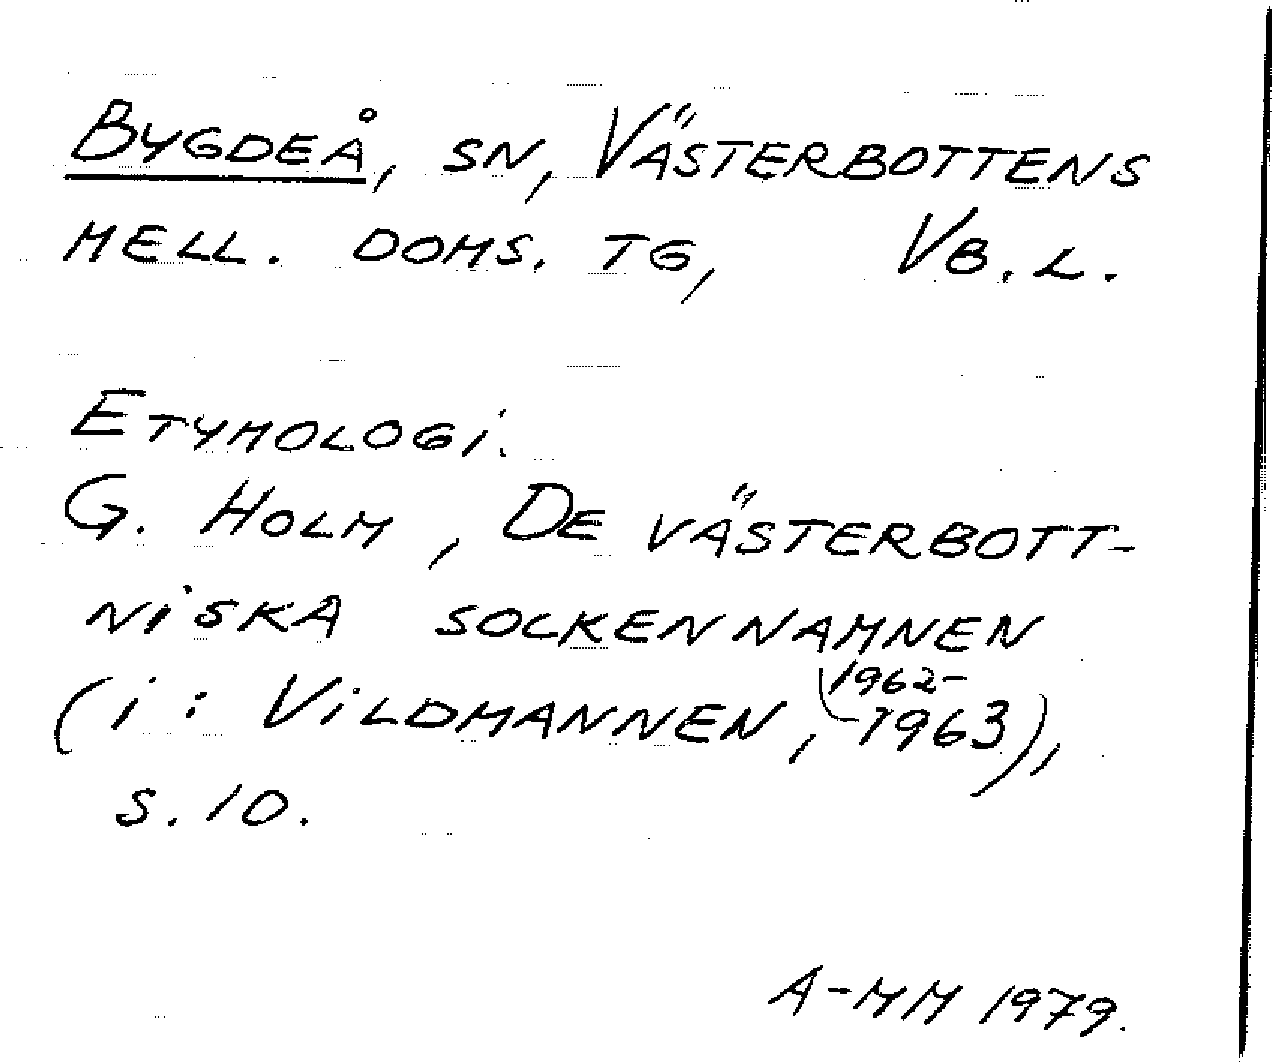 BYGDEÅ, SN, VÄSTERBOTTENS
MELL. DOMS. TG, VB. L.
ETYMOLOGI.
G. HOLM, DE VÄSTERBOTT-
NISKA SOCKENNAMNEN
(I: VILDMANNEN, 1962-
-1963),
S. 10.
A-MM 1979.